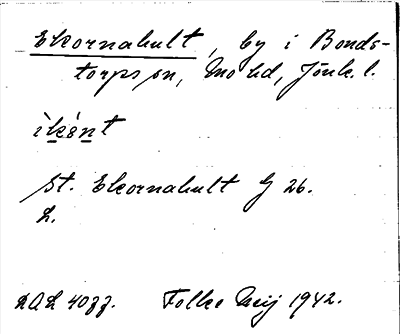 Ekornahult, by i Bonds-
torps sn, Mo hd, Jönk. l.
ìkə́nt
St. Ekornahult G 26.
L.
DAL 4077. Folke Meij 1942.